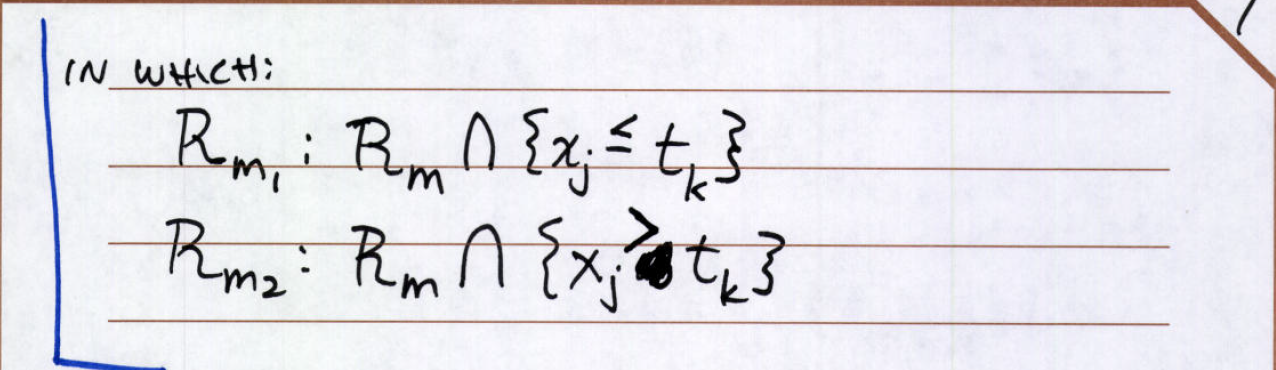 IN WHICH:
R_{m_1} : R_m ∩ {x_j ≤ t_k}
R_{m_2} : R_m ∩ {x_j > t_k}